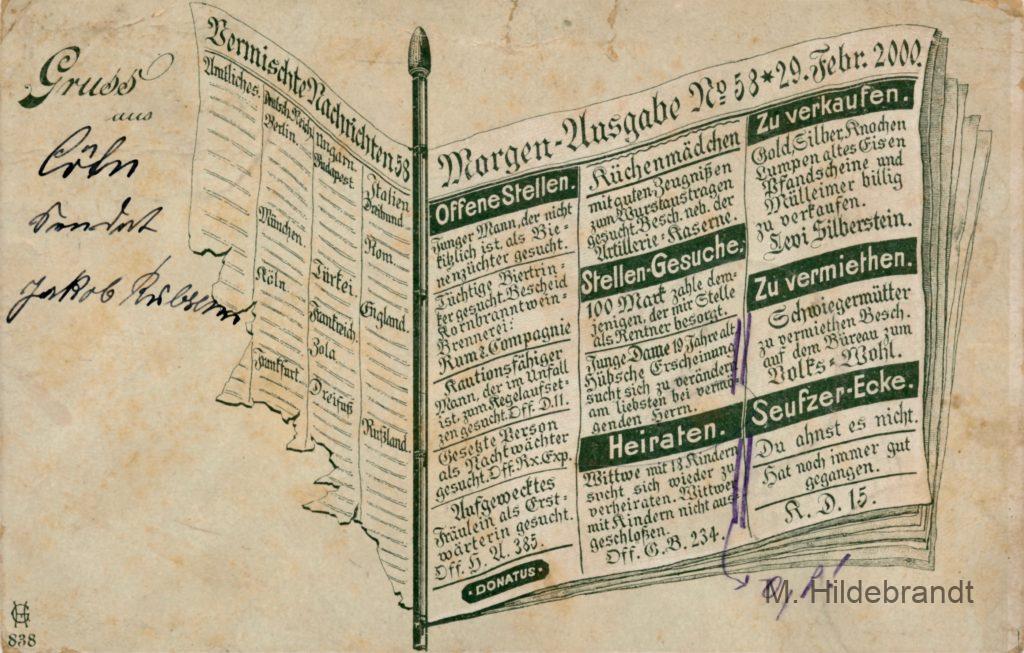 Gruss
aus
Cöln
sendet
Jakob
Vermischte Nachrichten 58
Amtliches.
Deutsch. Reich
Berlin.
München.
Köln.
Frankfurt.
Ungarn.
Budapest.
Türkei.
Frankreich.
Zola.
Dreifuß
Italien
Dreibund.
Rom.
England.
Rußland.
Morgen-Ausgabe No 58 * 29. Febr. 2000.
Offene Stellen.
Junger Mann, der nicht
kitzlich ist, als Bie-
nenzüchter gesucht.
Tüchtige Biertrin-
ker gesucht. Bescheid
Kornbranntwein-
Brennerei:
Rum & Compagnie
Kautionsfähiger
Mann, der im Unfall
ist, zum Kegelaufset-
zen gesucht. Off. D.11.
Gesetzte Person
als Nachtwächter
gesucht. Off. Rx. Exp.
Aufgewecktes
Fräulein als Erst-
wärterin gesucht.
Off. H. U. 385.
DONATUS
Küchenmädchen
mit guten Zeugnißen
zum Wurstaustragen
gesucht. Besch. neb. der
Artillerie-Kaserne.
Stellen-Gesuche.
100 Mark zahle dem-
jenigen, der mir Stelle
als Rentner besorgt.
Junge Dame 19 Jahre alt,
Hübsche Erscheinung
sucht sich zu verändern
am liebsten bei vermö-
genden Herrn.
Heiraten.
Wittwe mit 18 Kindern
sucht sich wieder zu
verheiraten. Wittwer
mit Kindern nicht aus-
geschloßen.
Off. G. B. 234.
Zu verkaufen.
Gold, Silber, Knochen
Lumpen, altes Eisen
Pfandscheine und
Mülleimer billig
zu verkaufen.
Levi Silberstein.
Zu vermiethen.
Schwiegermütter
zu vermiethen Besch.
auf dem Büreau zum
Volks-Wohl.
Seufzer-Ecke.
Du ahnst es nicht.
Hat noch immer gut
gegangen.
K. D. 15.
M. Hildebrandt
838